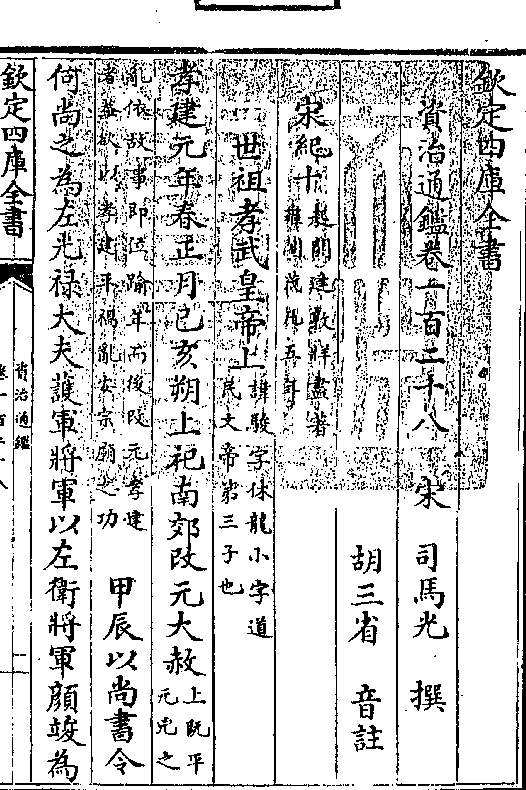 欽定四庫全書
資治通鑑卷一百二十八　宋　司馬光　撰
胡三省　音註
宋紀十起閼逢敦牂盡著雍閹茂凡五年
世祖孝武皇帝上諱駿字休龍小字道民文帝第三子也
孝建元年春正月己亥朔上祀南郊改元大赦上既平元兇之
亂依故事即位踰年而後改元孝建者蓋欲以孝建平禍亂安宗廟之功　甲辰以尚書令
何尚之為左光祿大夫護軍將軍以左衛將軍顏竣為
欽定四庫全書
資治通鑑